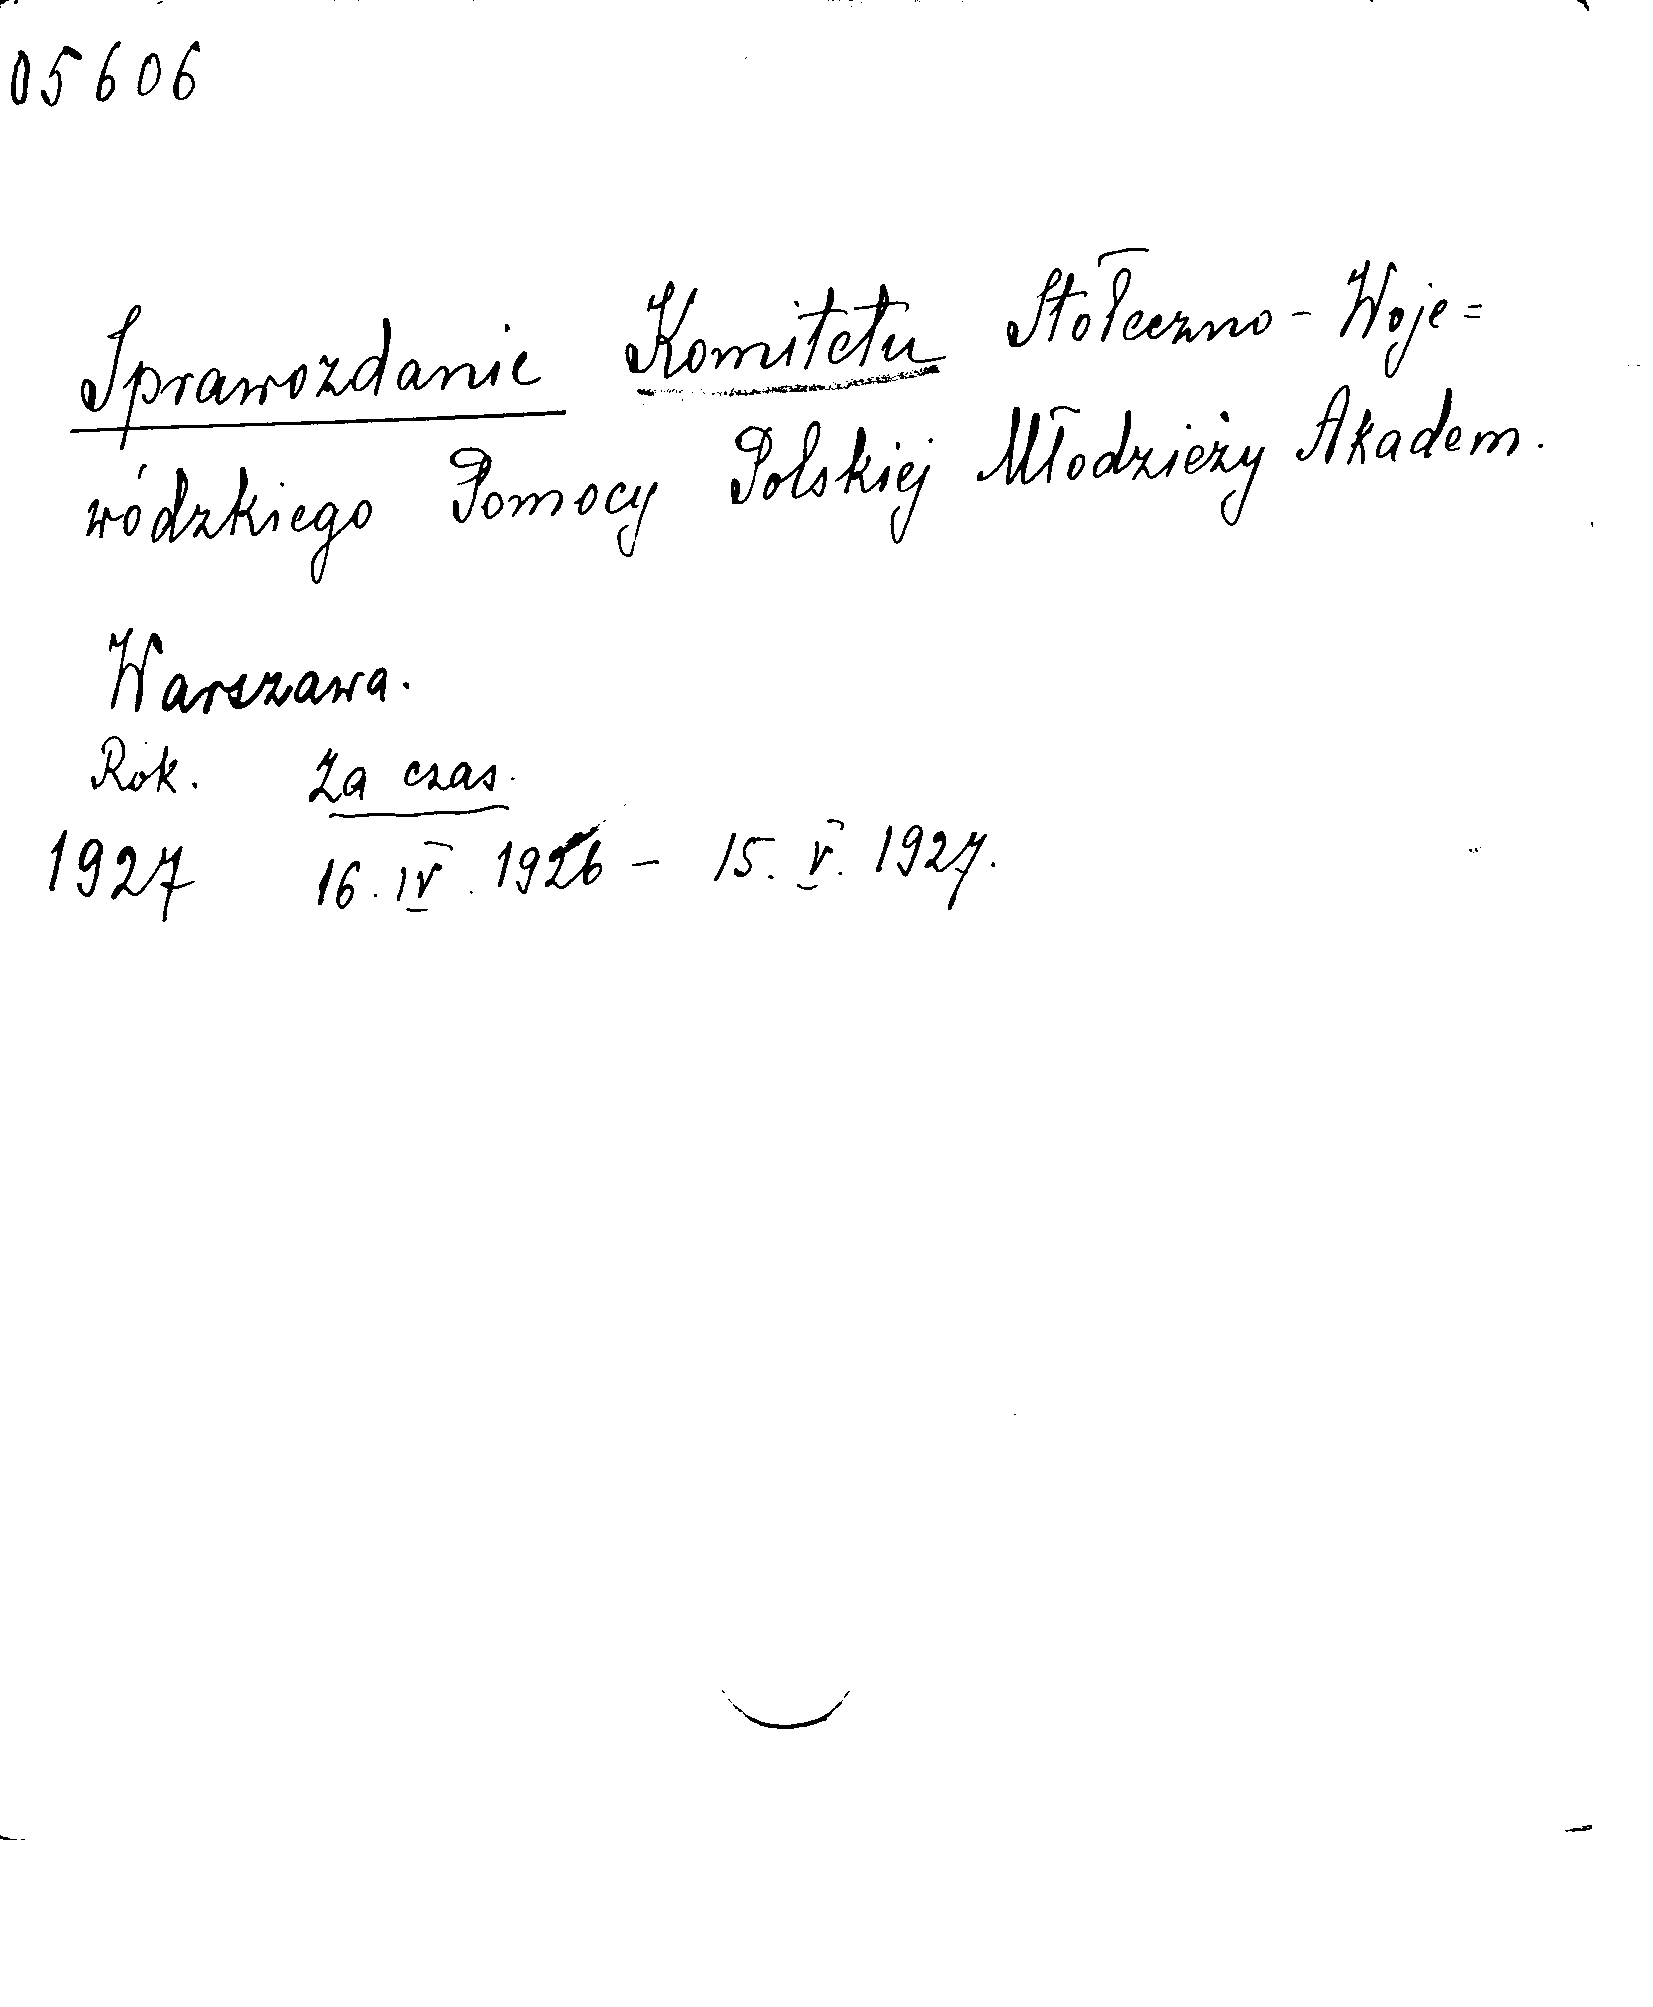 05606
Sprawozdanie Komitetu Stołeczno - Woje=
wódzkiego Pomocy Polskiej Młodzieży Akadem.
Warszawa.
Rok. Za czas.
1927 16. IV. 1926 - 15. V. 1927.